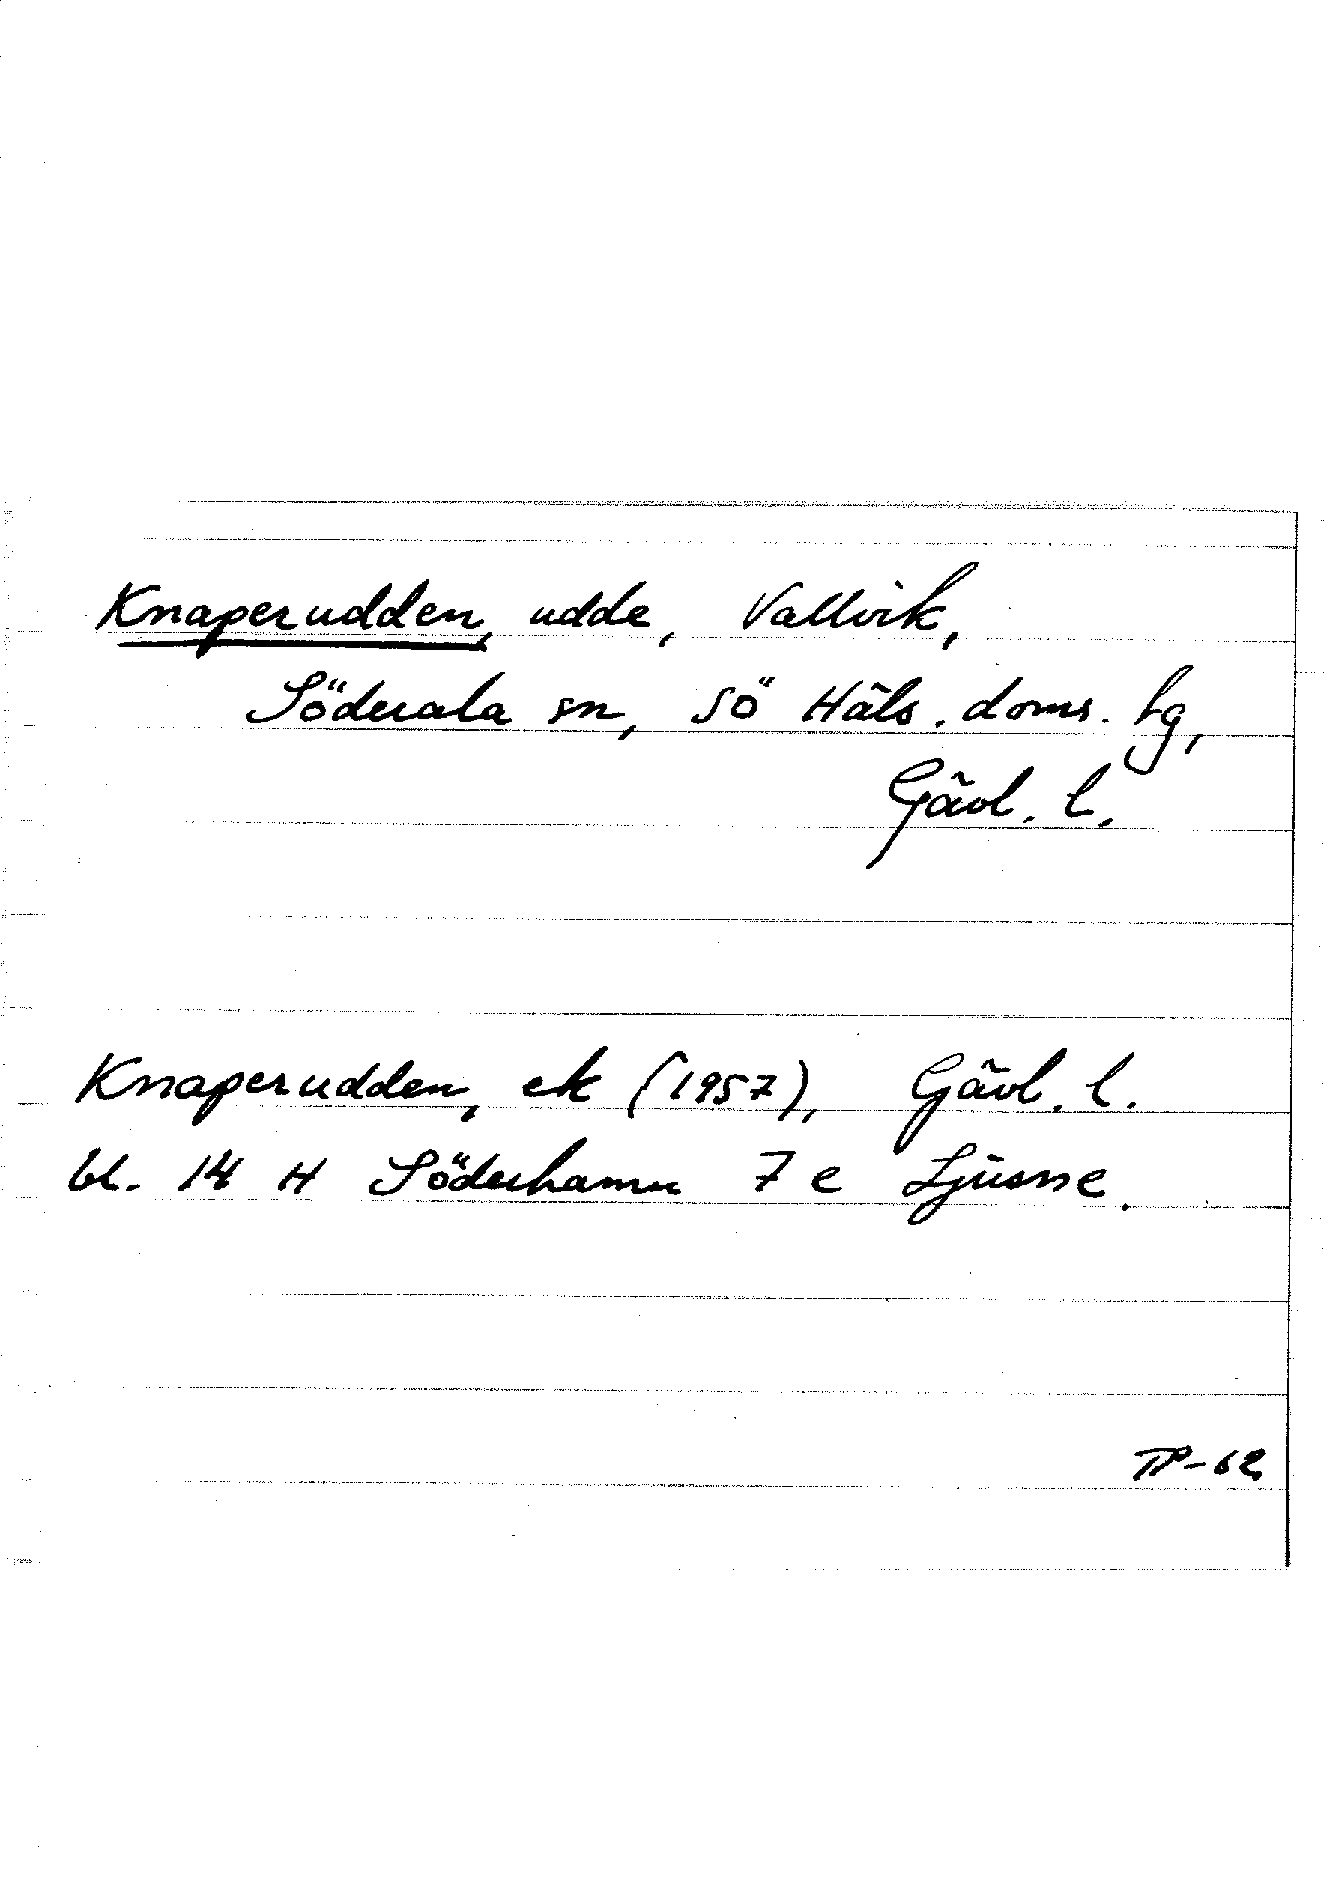 Knaperudden, udde, Vallvik,
Söderala sn, Sö Häls. doms. hg,
Gävl. l.
Knaperudden, ek (1957), Gävl. l.
bl. 14 H Söderhamn 7 e Ljusne.
TP-62